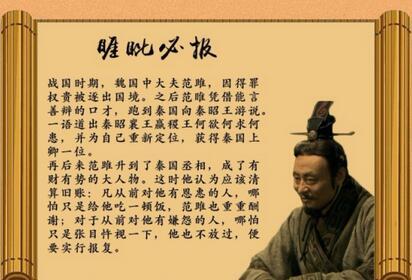 睚眦必报
战国时期，魏国中大夫范雎，因得罪
权贵被逐出国境。之后范雎凭借能言
善辩的口才，跑到秦国向秦昭王游说。
一语道出秦昭襄王嬴稷王何欲何求何
患，并为自己重新定位，获得秦国上
卿一位。
再后来范雎升到了秦国丞相，成了有
财有势的大人物。这时他认为应该清
算旧账：凡从前对他有恩惠的人，哪
怕只是给他吃一顿饭，范雎也重重酬
谢；对于从前对他有嫌怨的人，哪怕
只是张目忤视一下，他也不放过，便
要实行报复。